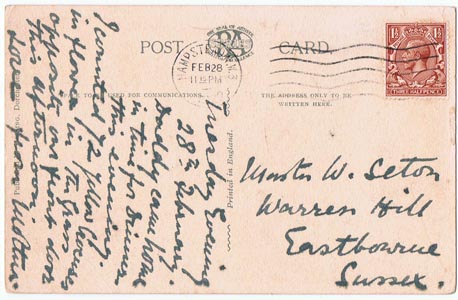 POST CARD.
THE SEAL OF ARTISTIC EXCELLENCE
HAMPSTEAD
FEB 28
11 PM
1½ 1½
THREE HALFPENCE
USED FOR COMMUNICATIONS.
THE ADDRESS ONLY TO BE
WRITTEN HERE.
Printed in England.
Tuesday Evening
28th February.
Daddy came home
in time for dinner
this evening
I counted 72 yellow
in flower in the grass
opposite our front door
this afternoon.
Love from Mother.
Master W. Seton
Warren Hill
Eastbourne
Sussex.